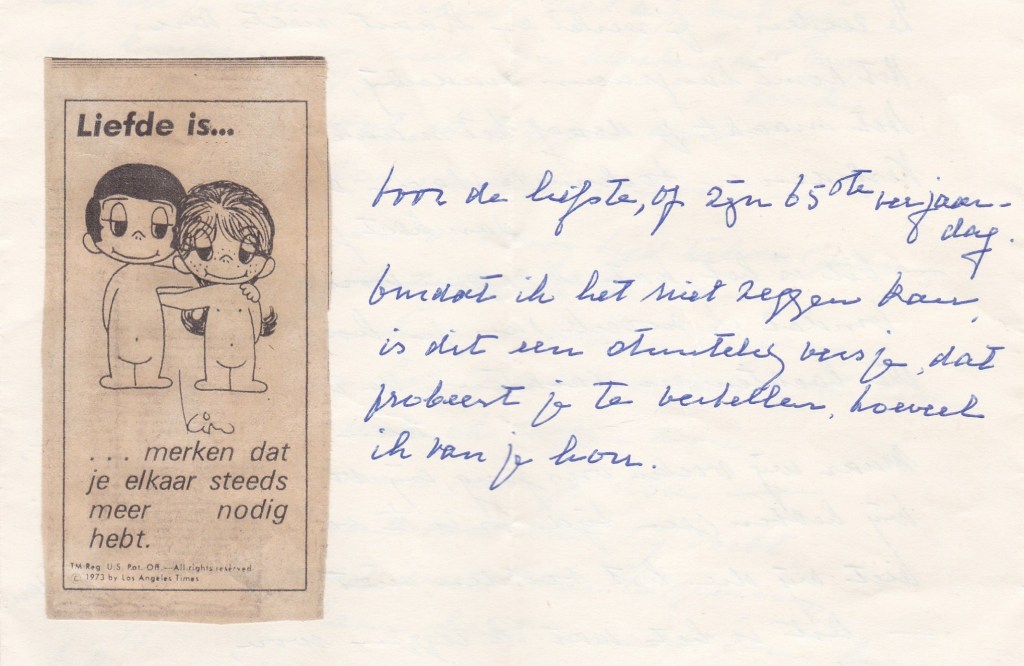 Liefde is...
Kim
... merken dat
je elkaar steeds
meer nodig
hebt.
TM Reg. U.S. Pat. Off.—All rights reserved
© 1973 by Los Angeles Times
voor de liefste, op zijn 65ste verjaar-
dag.
Omdat ik het niet zeggen kan,
is dit een stuntelig versje, dat
probeert je te vertellen, hoeveel
ik van je hou.